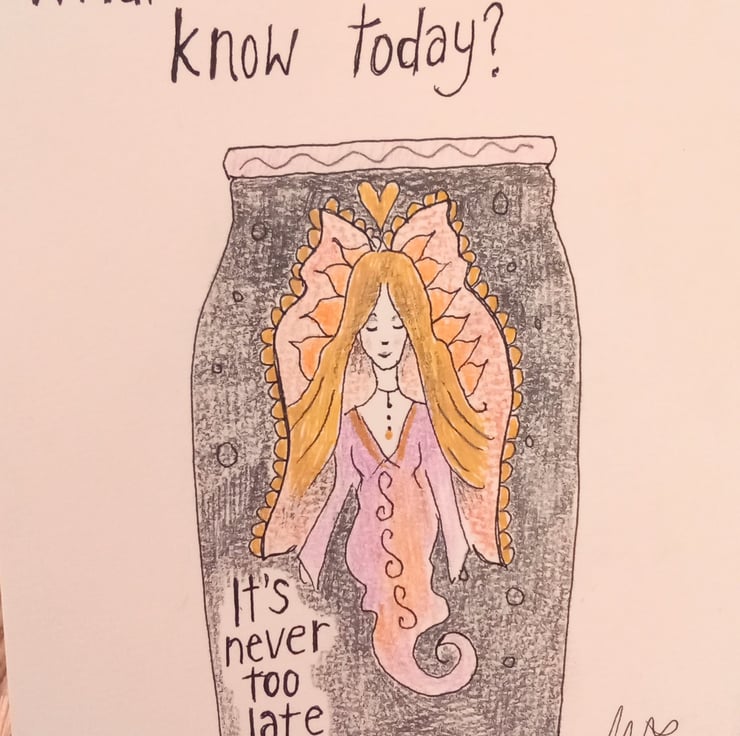 know today?
It's
never
too
late